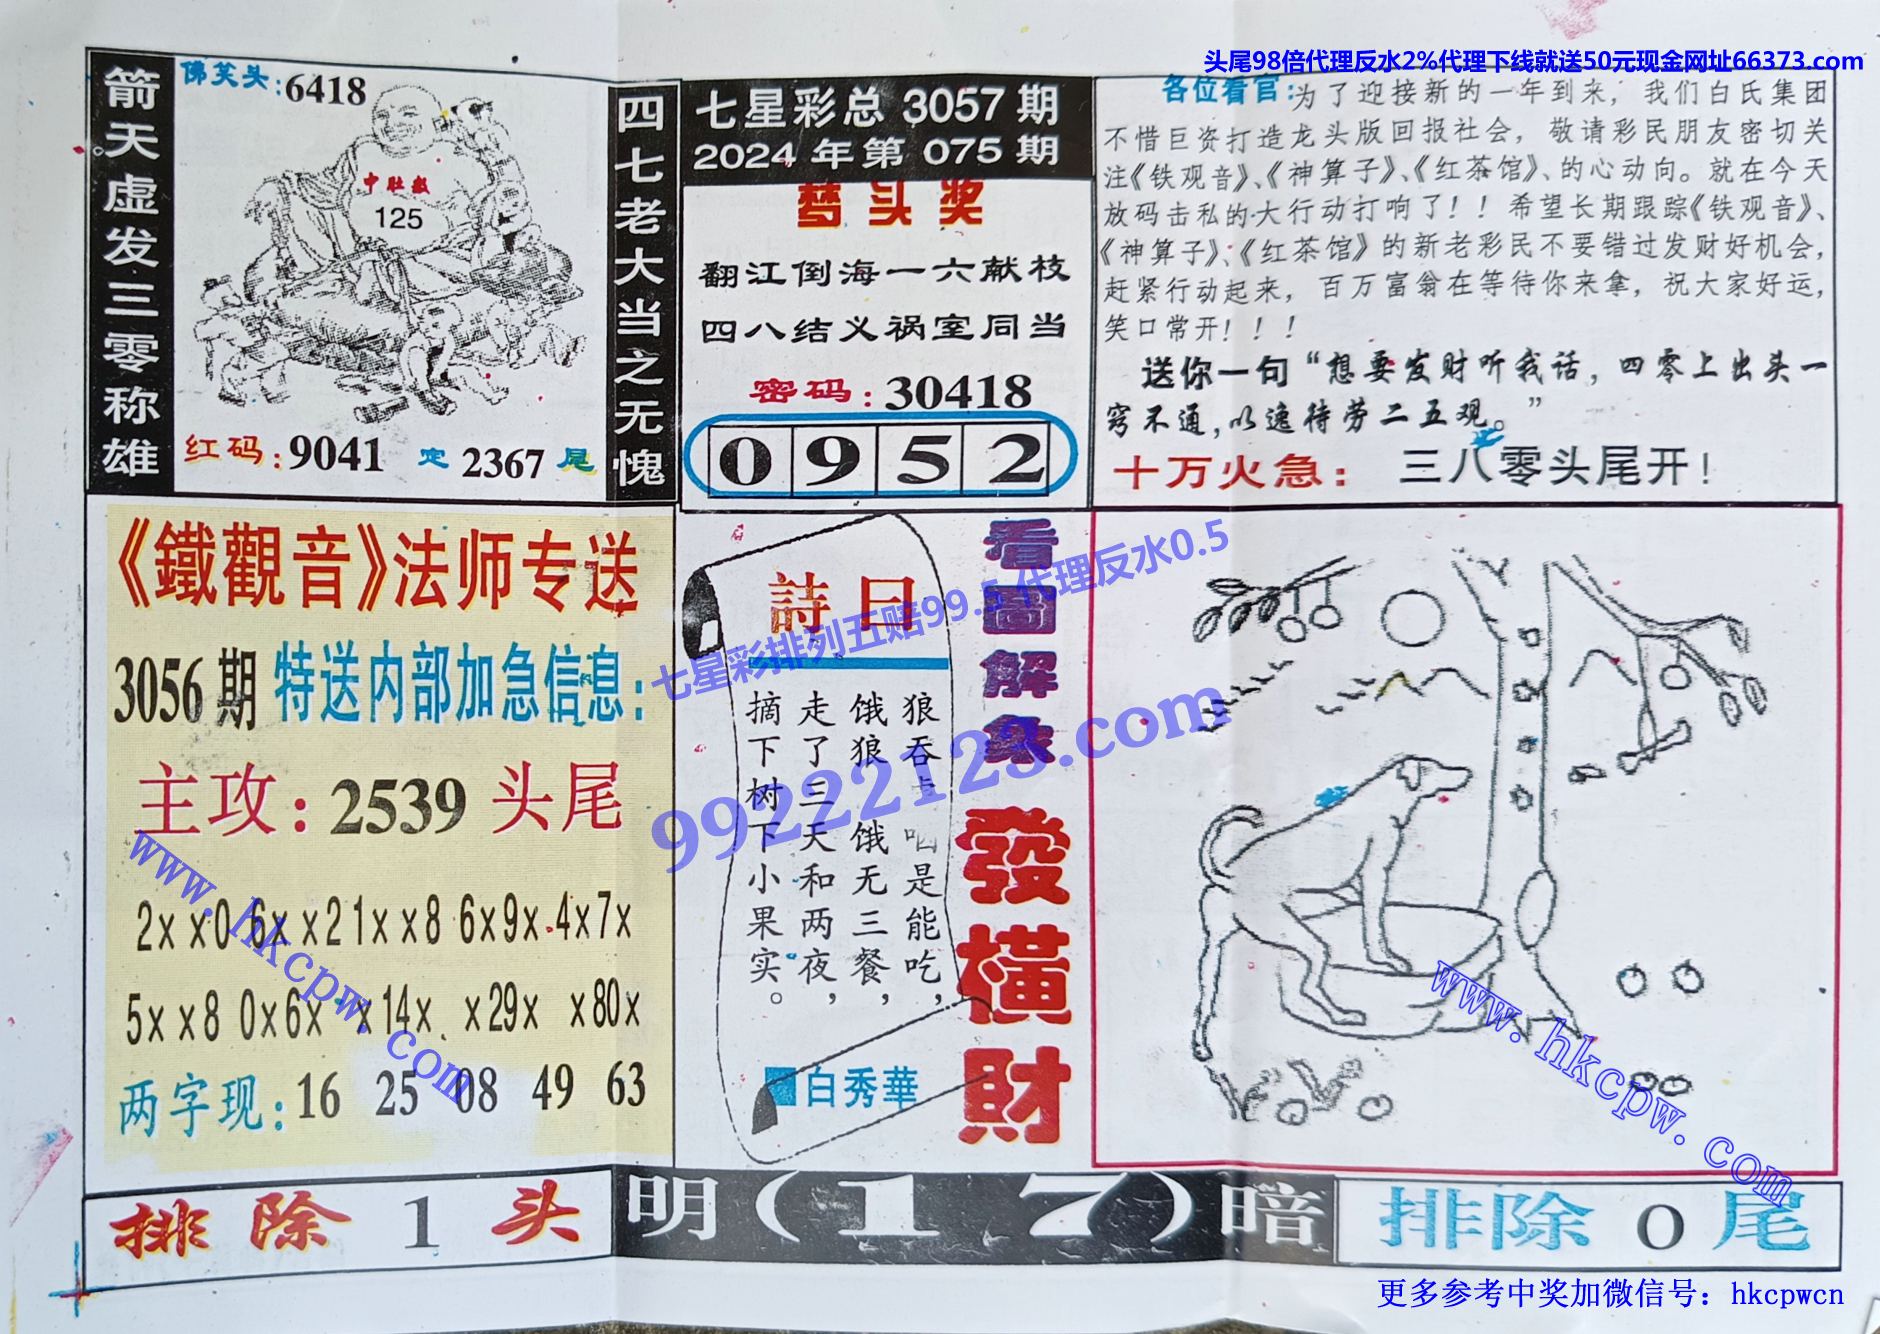 头尾98倍代理反水2%代理下线就送50元现金网址66373.com
箭天虚发三零称雄
佛笑头:6418
中肚数
125
红码:9041 定 2367 尾
四七老大当之无愧
七星彩总 3057 期
2024 年第 075 期
梦头奖
翻江倒海一六献枝
四八结义祸室同当
密码:30418
0 9 5 2
各位看官:为了迎接新的一年到来，我们白氏集团
不惜巨资打造龙头版回报社会，敬请彩民朋友密切关
注《铁观音》、《神算子》、《红茶馆》、的心动向。就在今天
放码击私的大行动打响了！！希望长期跟踪《铁观音》、
《神算子》、《红茶馆》的新老彩民不要错过发财好机会，
赶紧行动起来，百万富翁在等待你来拿，祝大家好运，
笑口常开！！！
送你一句“想要发财听我话，四零上出头一
窍不通，以逸待劳二五观。”
十万火急：三八零头尾开！
《鐵觀音》法师专送
3056 期 特送内部加急信息：
主攻：2539 头尾
2xx0 6xx2 1xx8 6x9x 4x7x
5xx8 0x6x x14x x29x x80x
两字现：16 25 08 49 63
詩曰
狼吞 咽是能吃，
饿狼饿无三餐，
走了三天和两夜，
摘下树下小果实。
白秀華
看圖解象
發橫財
七星彩排列五赔99.5 代理反水0.5
99222123.com
www.hkcpw.com
www.hkcpw.com
排除 1 头
明(17)暗
排除 0 尾
更多参考中奖加微信号：hkcpwcn